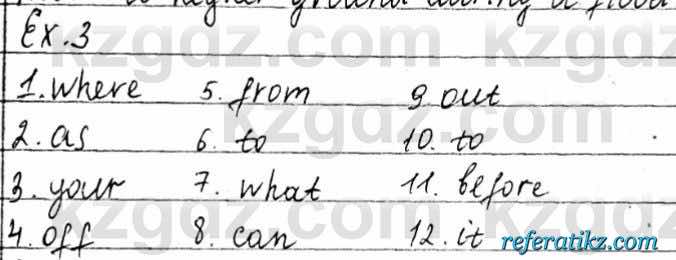 to higher ground during a flood
Ex.3
1. where 5. from 9. out
2. as 6. to 10. to
3. your 7. what 11. before
4. off 8. can 12. it
referatikz.com
kzgdz.com